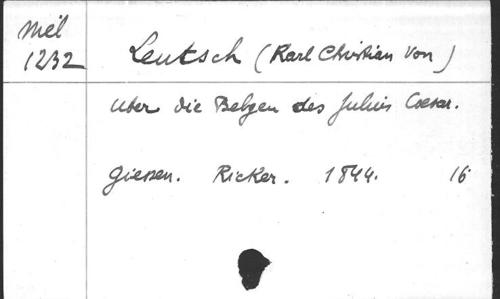 Mél
1232
Leutsch (Karl Christian von)
Uber die Belgen des Julius Caesar.
Giessen. Ricker. 1844. 16